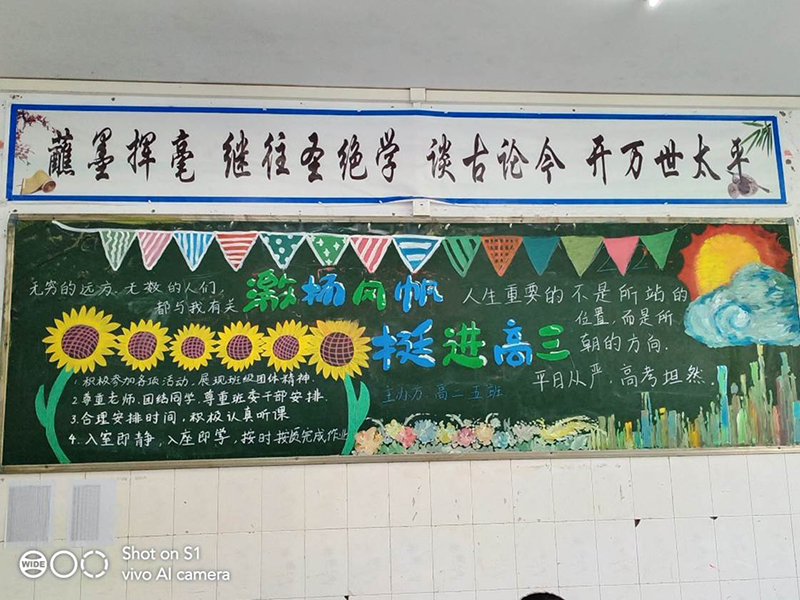 蘸墨挥毫 继往圣绝学 谈古论今 开万世太平
无穷的远方,无数的人们,
都与我有关
激扬风帆
挺进高三
1.积极参加各项活动,展现班级团体精神.
2.尊重老师、团结同学、尊重班委干部安排.
3.合理安排时间,积极认真听课
4.入室即静,入座即学,按时按质完成作业
主办方:高二五班
人生重要的不是所站的
位置,而是所
朝的方向.
平日从严,高考坦然.
WIDE
Shot on S1
vivo AI camera